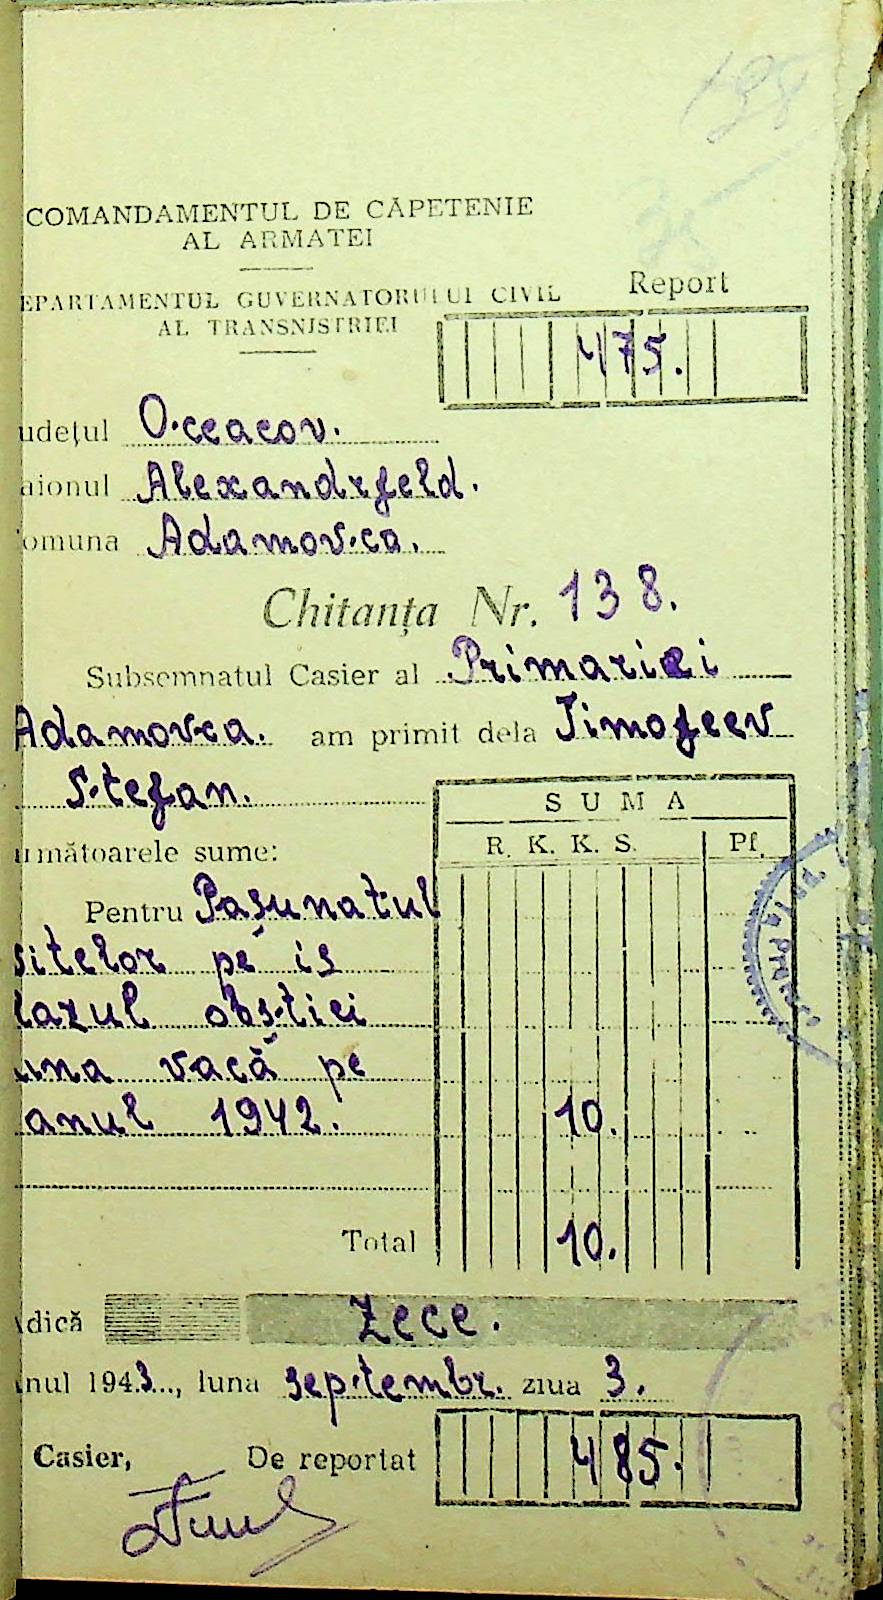 198
COMANDAMENTUL DE CĂPETENIE
AL ARMATEI
EPARTAMENTUL GUVERNATORULUI CIVIL
AL TRANSNISTRIEI
Report
475.
udețul Oceacov.
aionul Alexandrfeld.
omuna Adamovca.
Chitanța Nr. 138.
Subsemnatul Casier al Primariei
Adamovca. am primit dela Timofeev
Stefan.
următoarele sume:
SUMA
R. K. K. S. Pf.
Pentru Pașunatul
sitelor pe is
lazul obștiei
una vacă pe
anul 1942. 10.
Total 10.
Adică Zece.
Anul 1943..., luna septembr. ziua 3.
Casier, De reportat 485.